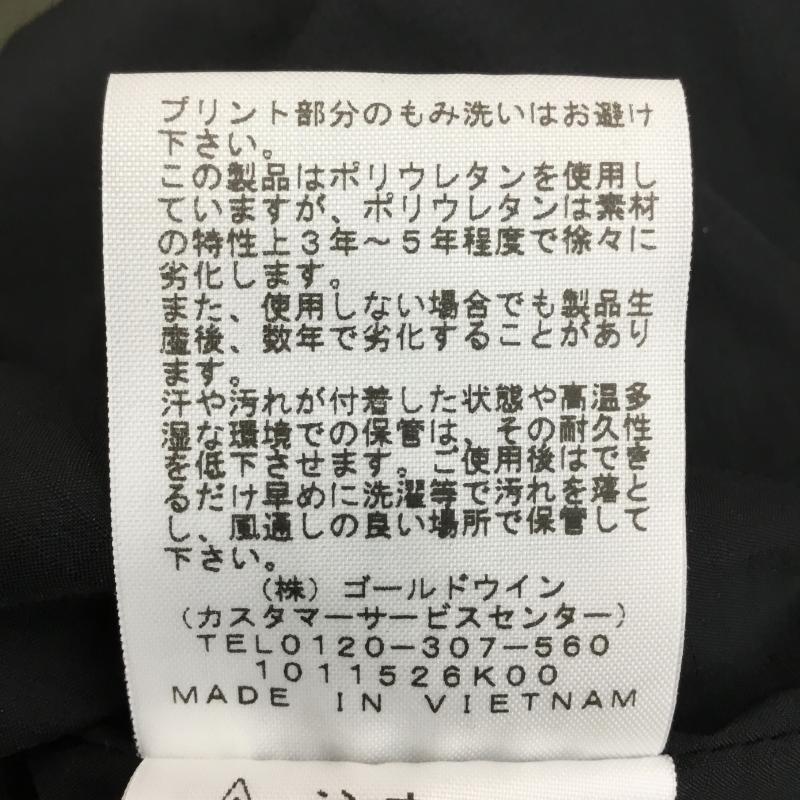 プリント部分のもみ洗いはお避け
下さい。
この製品はポリウレタンを使用し
ていますが、ポリウレタンは素材
の特性上3年～5年程度で徐々に
劣化します。
また、使用しない場合でも製品生
産後、数年で劣化することがあり
ます。
汗や汚れが付着した状態や高温多
湿な環境での保管は、その耐久性
を低下させます。ご使用後はでき
るだけ早めに洗濯等で汚れを落と
し、風通しの良い場所で保管して
下さい。
(株) ゴールドウイン
(カスタマーサービスセンター)
TEL0120-307-560
1011526K00
MADE IN VIETNAM